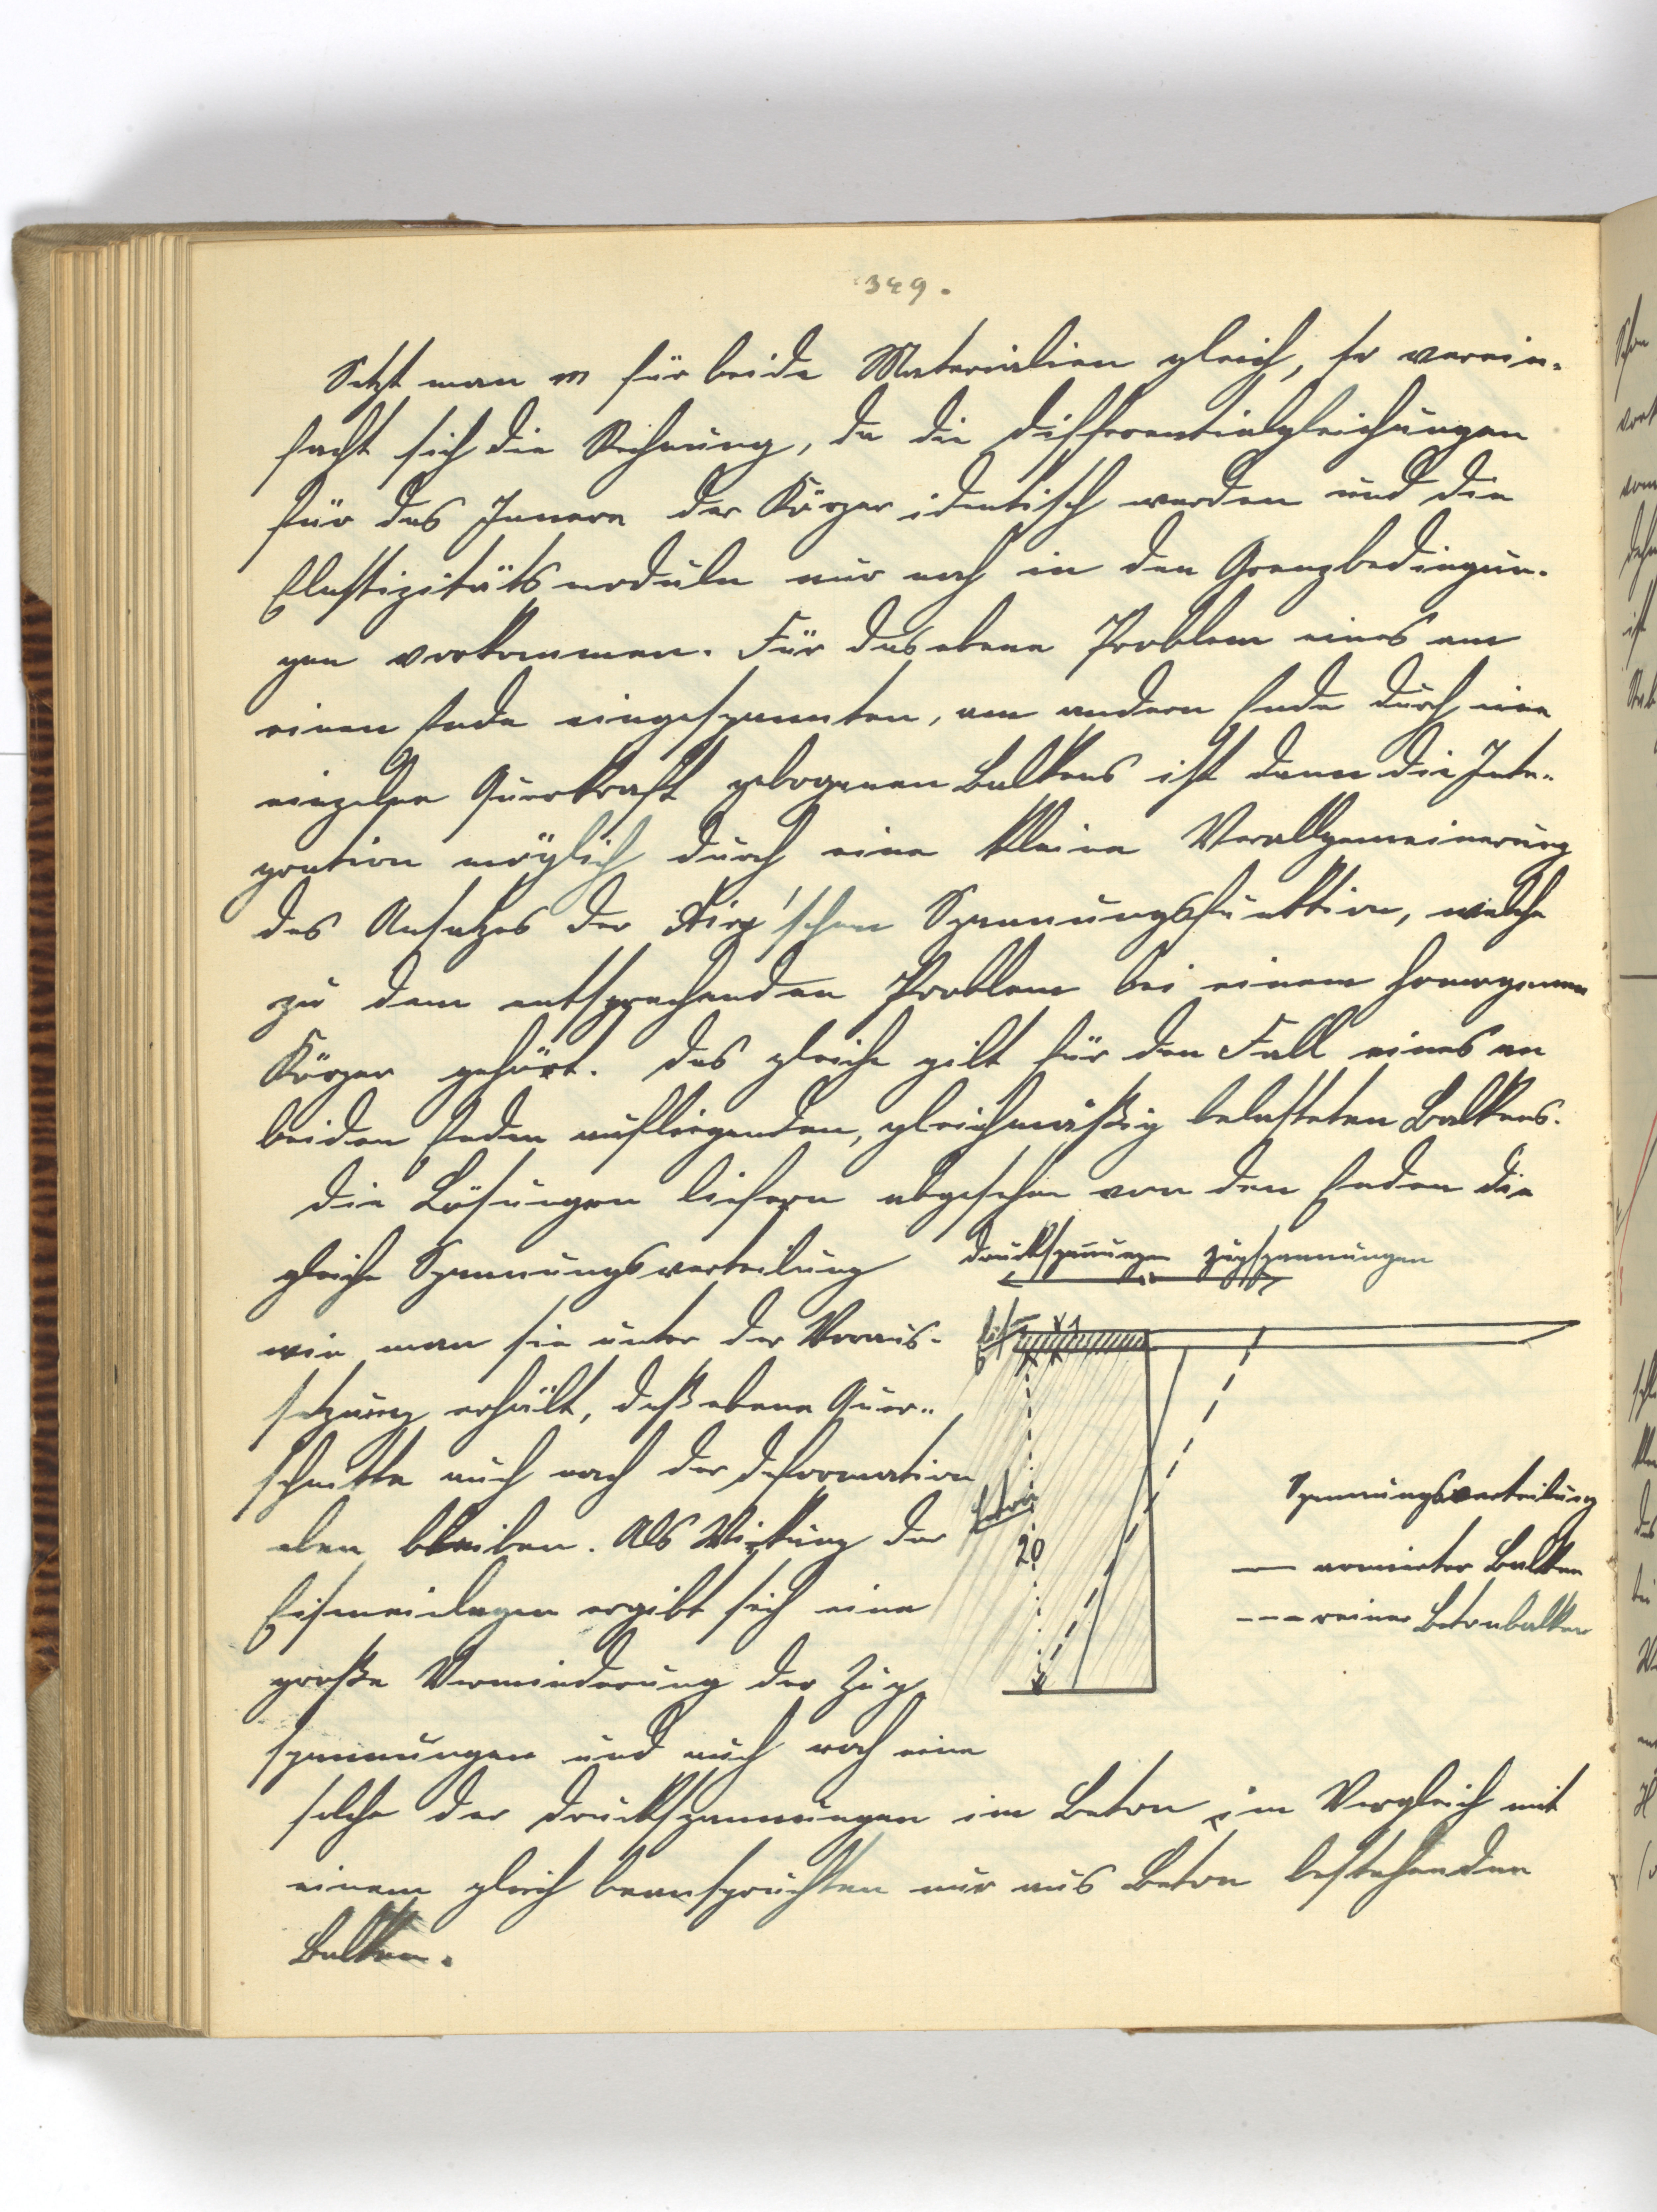 349.
Setzt man m für beide Materialien gleich, so verein-
facht sich die Rechnung, da die Differentialgleichungen
für das Innere der Körper identisch werden und die
Elastizitätsmoduln nur noch in den Grenzbedingun-
gen vorkommen. Für das ebene Problem eines am
einen Ende eingespannten, am andern Ende durch eine
einzelne Querkraft gebogenen Balkens ist dann die Inte-
gration möglich durch eine kleine Verallgemeinerung
des Ansatzes der Airy'schen Spannungsfunktion, welche
zu dem entsprechenden Problem bei einem homogenen
Körper gehört. Das gleiche gilt für den Fall eines an
beiden Enden aufliegenden, gleichmäßig belasteten Balkens.
Die Lösungen liefern abgesehen von den Enden die
gleiche Spannungsverteilung
Druckspannungen Zugspannungen
wie man sie unter der Voraus-
setzung erhält, daß ebene Quer-
schnitte auch nach der Deformation
eben bleiben. Als Wirkung der
Eiseneinlagen ergibt sich eine
große Verminderung der Zug-
spannungen und auch noch eine
1
Beton
20
Spannungsverteilung
— armierter Balken
--- reiner Betonbalken
solche der Druckspannungen im Beton im Vergleich mit
einem gleich beanspruchten nur aus Beton bestehenden
Balken.